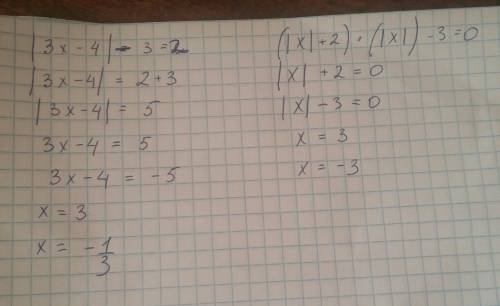 |3x-4| - 3 = 2
|3x-4| = 2+3
|3x-4| = 5
3x-4 = 5
3x-4 = -5
x = 3
x = -1/3
(|x|+2) · (|x|) - 3 = 0
|x| + 2 = 0
|x| - 3 = 0
x = 3
x = -3